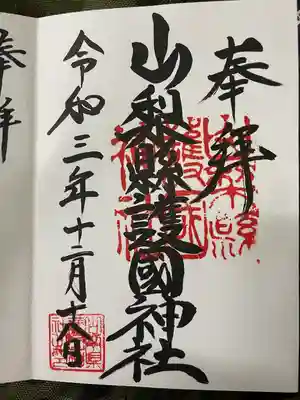 奉拝
山梨縣護國神社
令和三年十二月十八日
奉拝